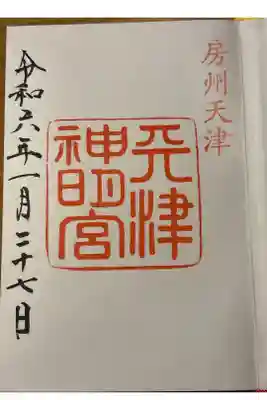 房州天津
天津
神明宮
令和六年一月二十七日